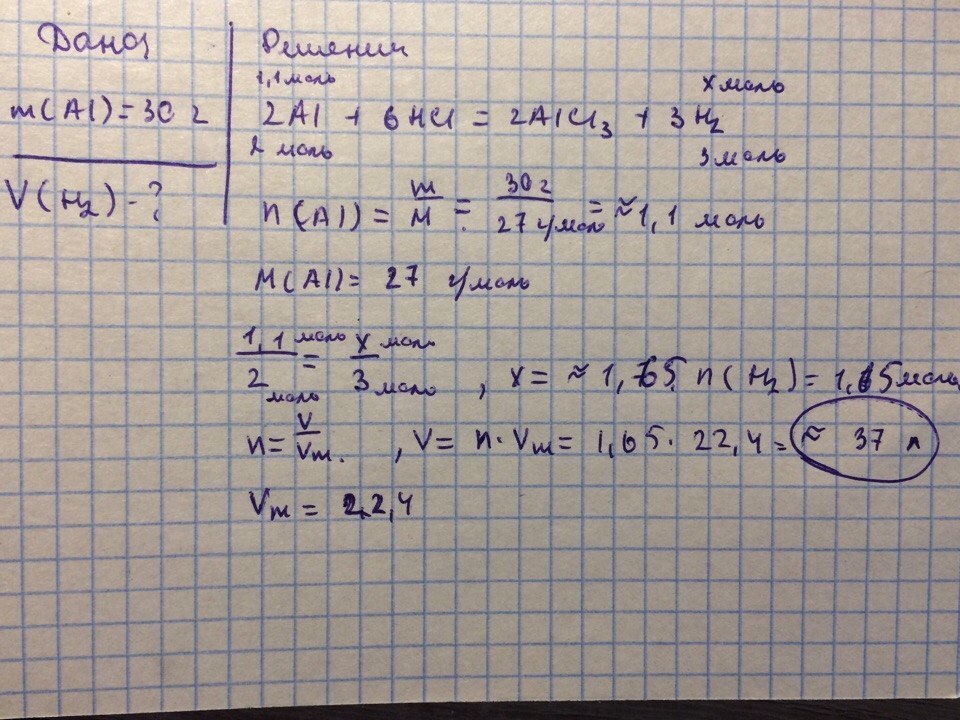 Дано:
m(Al) = 30 г
V(H₂) - ?
Решение
1,1 моль х моль
2Al + 6HCl = 2AlCl₃ + 3H₂
2 моль 3 моль
n(Al) = m/M = 30 г/27 г/моль = ≈ 1,1 моль
M(Al) = 27 г/моль
1,1 моль/2 моль = х моль/3 моль , х = ≈ 1,65 n(H₂) = 1,65 моль
n = V/Vm. , V = n · Vm = 1,65 · 22,4 = ≈ 37 л
Vm = 22,4